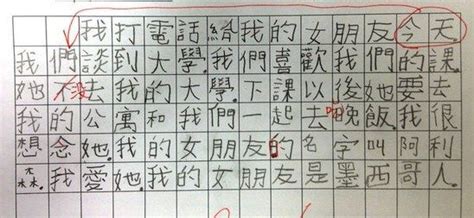 我打電話給我的女朋友今天
我們談到大學。我們喜歡我們的課。
她不没去我的大學。下課以後她要去
我的公寓和我們一起去吃晚飯。我很
想念她。我的女朋友的名字叫阿利
森。我愛她。我的女朋友是墨西哥人。